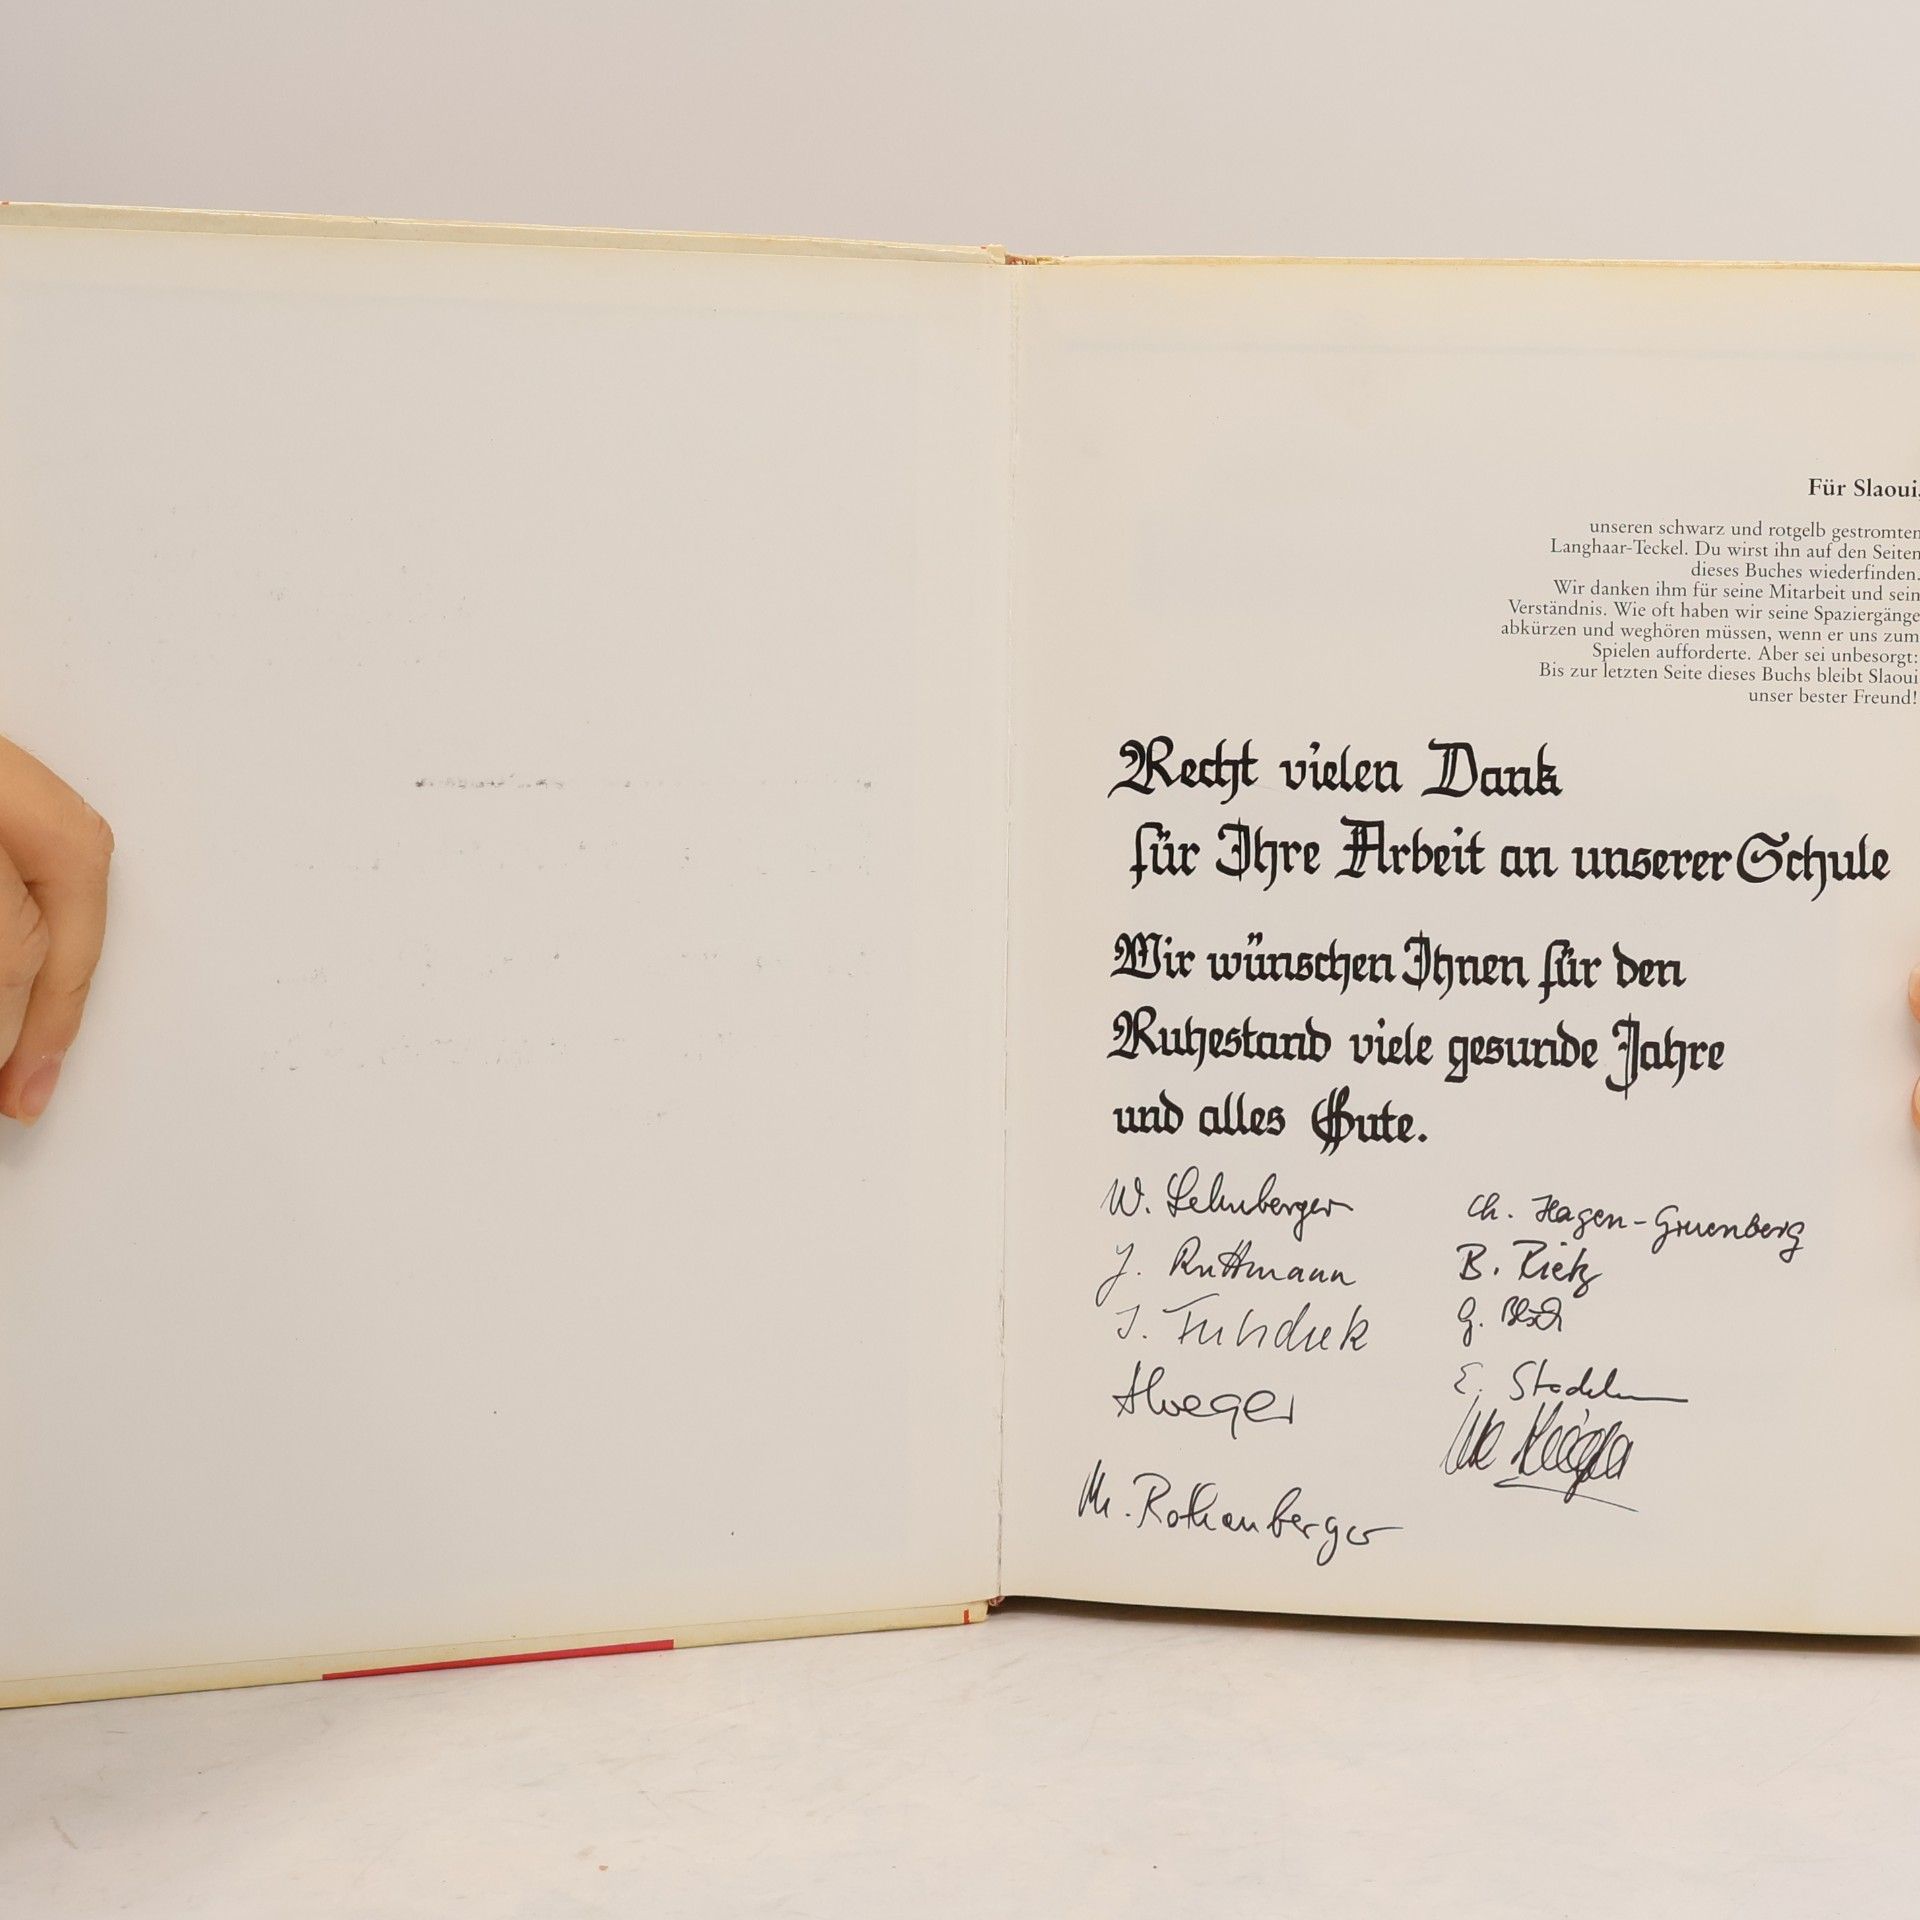 Für Slaoui,
unseren schwarz und rotgelb gestromten
Langhaar-Teckel. Du wirst ihn auf den Seiten
dieses Buches wiederfinden.
Wir danken ihm für seine Mitarbeit und sein
Verständnis. Wie oft haben wir seine Spaziergänge
abkürzen und weghören müssen, wenn er uns zum
Spielen aufforderte. Aber sei unbesorgt:
Bis zur letzten Seite dieses Buchs bleibt Slaoui
unser bester Freund!
Recht vielen Dank
für Ihre Arbeit an unserer Schule
Wir wünschen Ihnen für den
Ruhestand viele gesunde Jahre
und alles Gute.
W.
J. Ruttmann
J.
M. Rothenberger
Ch. Hagen-Gruenberg
B. Rietz
G.
E.